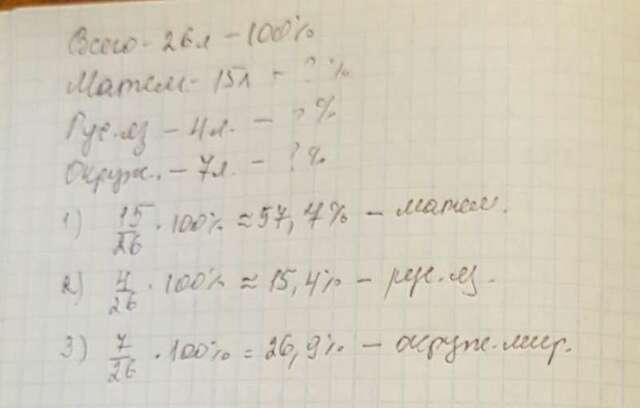 Всего - 26л - 100%
Матем - 15л - ? %
Рус.яз - 4л. - ?%
Окруж. - 7л. - ?%
1) 15/26 · 100% ≈ 57,7% - матем.
2) 4/26 · 100% ≈ 15,4% - рус.яз.
3) 7/26 · 100% = 26,9% - окруж.мир.